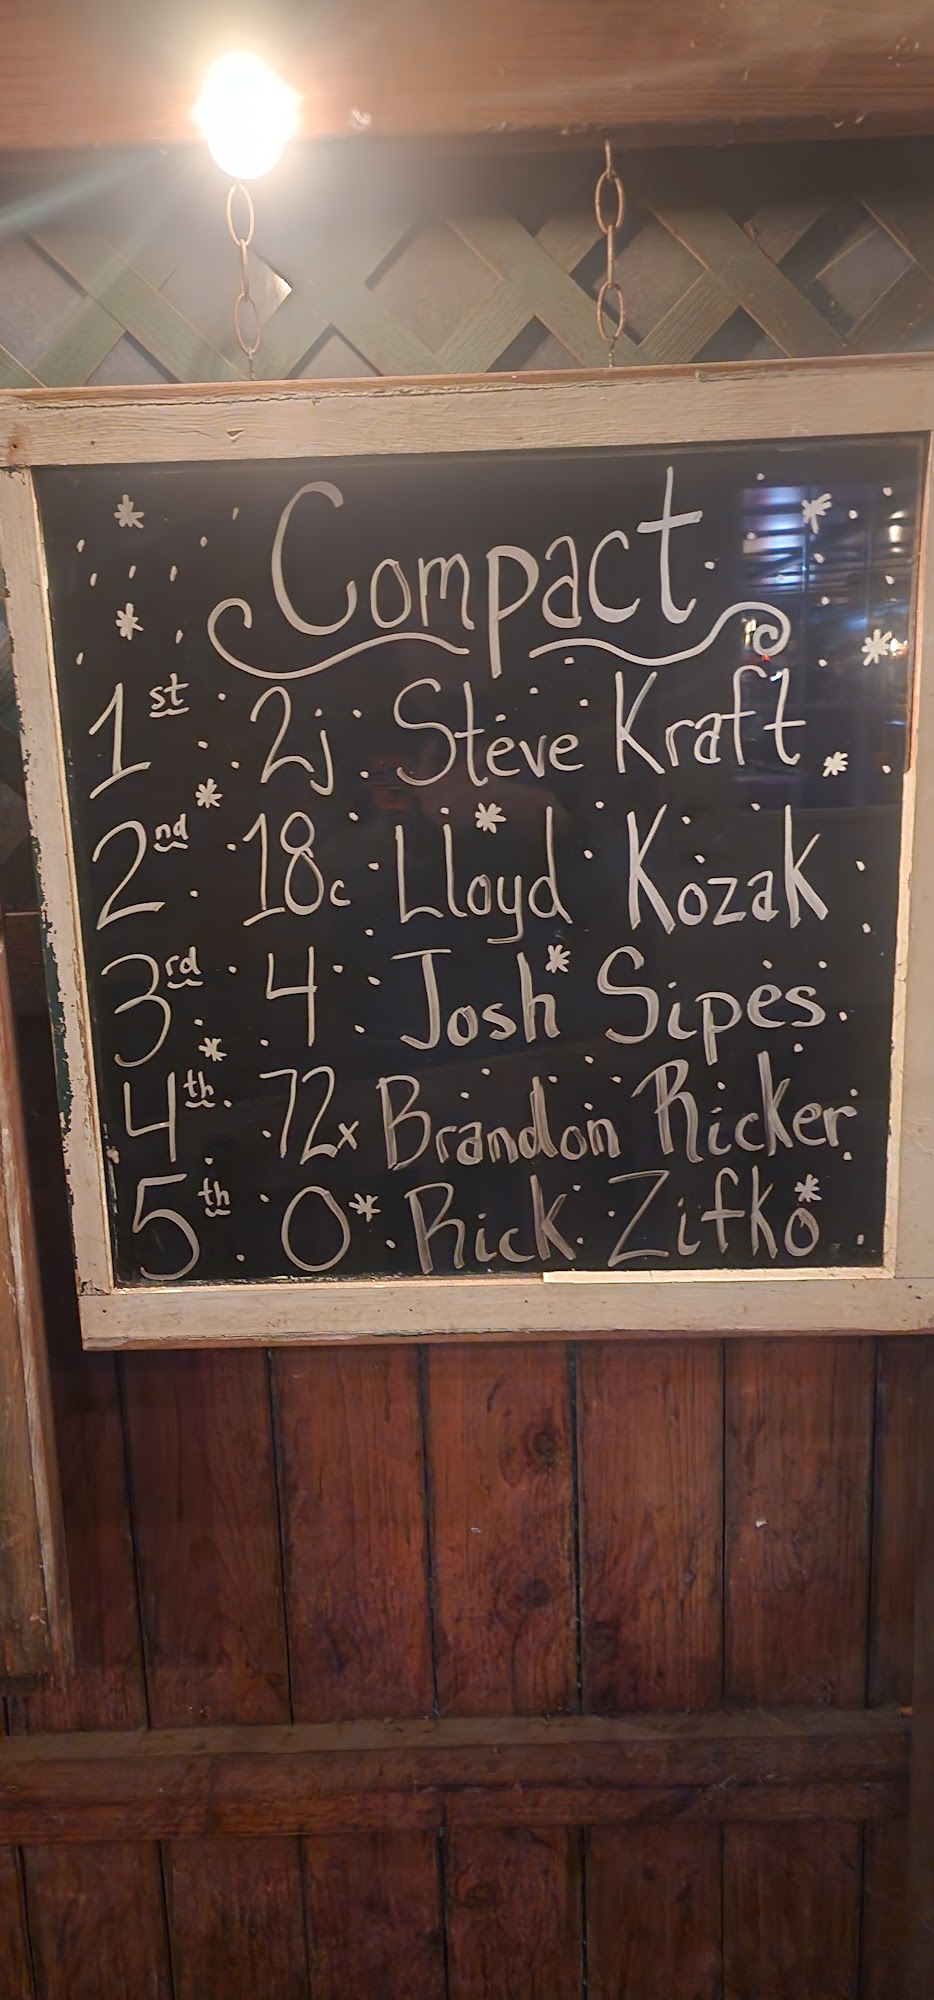 Compact
1st 2j Steve Kraft
2nd 18c Lloyd Kozak
3rd 4 Josh Sipes
4th 72x Brandon Ricker
5th 0 Rick Zifko